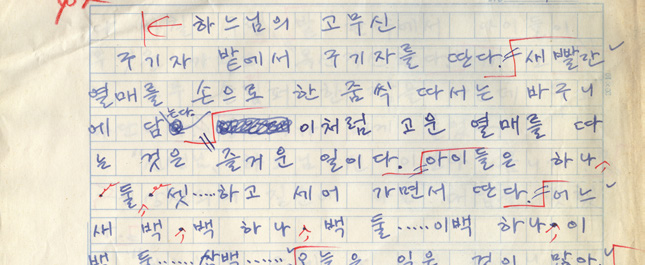 하느님의 고무신
구기자 밭에서 구기자를 딴다. 새빨간
열매를 손으로 한 줌씩 따서는 바구니
에 담는다. 이처럼 고운 열매를 따
는 것은 즐거운 일이다. 아이들은 하나,
둘, 셋……하고 세어 가면서 딴다. 어느
새 백, 백 하나, 백 둘……이백 하나, 이
백 둘…… 삼백…… 오늘은 익은 것이 많아